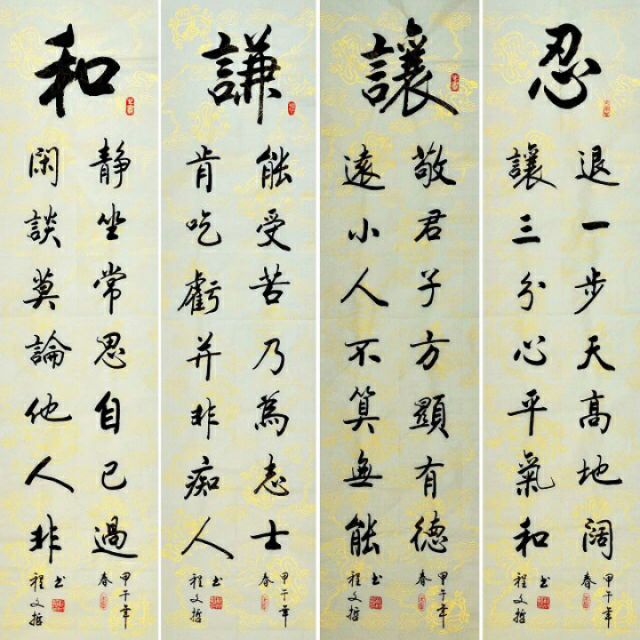 忍
退一步天高地阔
讓三分心平氣和
甲午年春
程文哲书
讓
敬君子方顯有德
遠小人不算無能
甲午年春
程文哲书
謙
能受苦乃為志士
肯吃虧并非痴人
甲午年春
程文哲书
和
静坐常思自己過
闲談莫論他人非
甲午年春
程文哲书